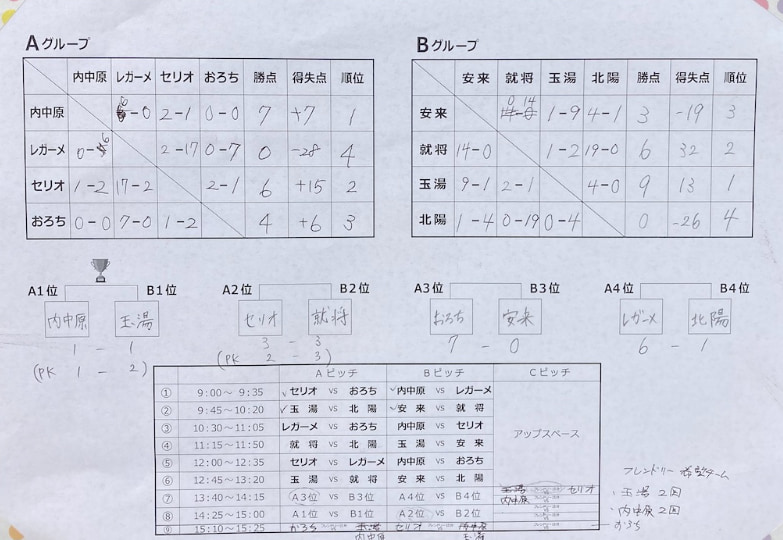 Aグループ
内中原 レガーメ セリオ おろち 勝点 得失点 順位
内中原 6-0 2-1 0-0 7 +7 1
レガーメ 0-6 2-17 0-7 0 -28 4
セリオ 1-2 17-2 2-1 6 +15 2
おろち 0-0 7-0 1-2 4 +6 3
Bグループ
安来 就将 玉湯 北陽 勝点 得失点 順位
安来 0 14 1-9 4-1 3 -19 3
就将 14-0 1-2 19-0 6 32 2
玉湯 9-1 2-1 4-0 9 13 1
北陽 1-4 0-19 0-4 0 -26 4
A1位 B1位 A2位 B2位 A3位 B3位 A4位 B4位
内中原 玉湯 セリオ 就将 おろち 安来 レガーメ 北陽
1 - 1 3 - 3 7 - 0 6 - 1
(PK 1 - 2) (PK 2 - 3)
Aピッチ Bピッチ Cピッチ
① 9:00～ 9:35 セリオ vs おろち 内中原 vs レガーメ
② 9:45～10:20 玉湯 vs 北陽 安来 vs 就将
③ 10:30～11:05 レガーメ vs おろち 内中原 vs セリオ
アップスペース
④ 11:15～11:50 就将 vs 北陽 玉湯 vs 安来
⑤ 12:00～12:35 セリオ vs レガーメ 内中原 vs おろち
⑥ 12:45～13:20 玉湯 vs 就将 安来 vs 北陽
⑦ 13:40～14:15 A3位 vs B3位 A4位 vs B4位 玉湯 内中原 セリオ
⑧ 14:25～15:00 A1位 vs B1位 A2位 vs B2位
⑨ 15:10～15:25 おろち 玉湯 セリオ 内中原
内中原 玉湯
フレンドリー 希望チーム
・玉湯 2回
・内中原 2回
おろち